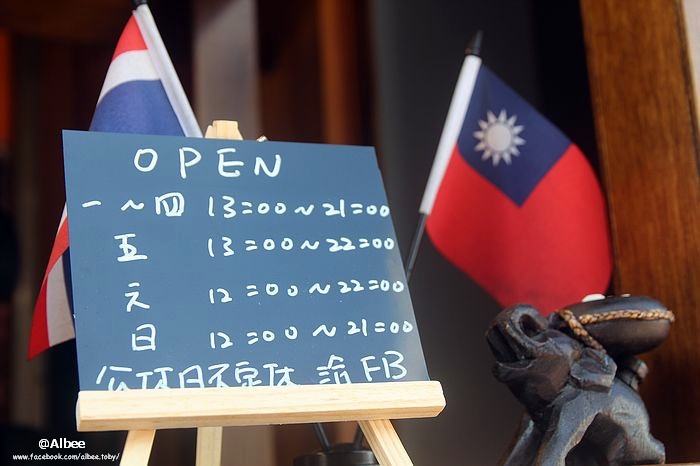 OPEN
一~四 13:00~21:00
五 13:00~22:00
六 12:00~22:00
日 12:00~21:00
公休日不定休 FB
@Albee
www.facebook.com/albee.toby/